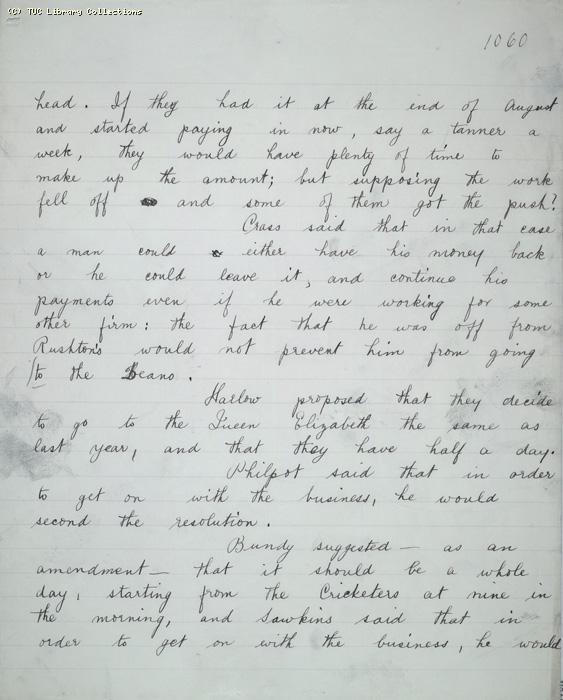 (C) TUC Library Collections
1060
head. If they had it at the end of August
and started paying in now, say a tanner a
week, they would have plenty of time to
make up the amount; but supposing the work
fell off and some of them got the push?
Crass said that in that case
a man could either have his money back
or he could leave it, and continue his
payments even if he were working for some
other firm: the fact that he was off from
Rushton's would not prevent him from going
to the Beano.
Harlow proposed that they decide
to go to the Queen Elizabeth the same as
last year, and that they have half a day.
Philpot said that in order
to get on with the business, he would
second the resolution.
Bundy suggested — as an
amendment — that it should be a whole
day, starting from the Cricketers at nine in
the morning, and Sawkins said that in
order to get on with the business, he would